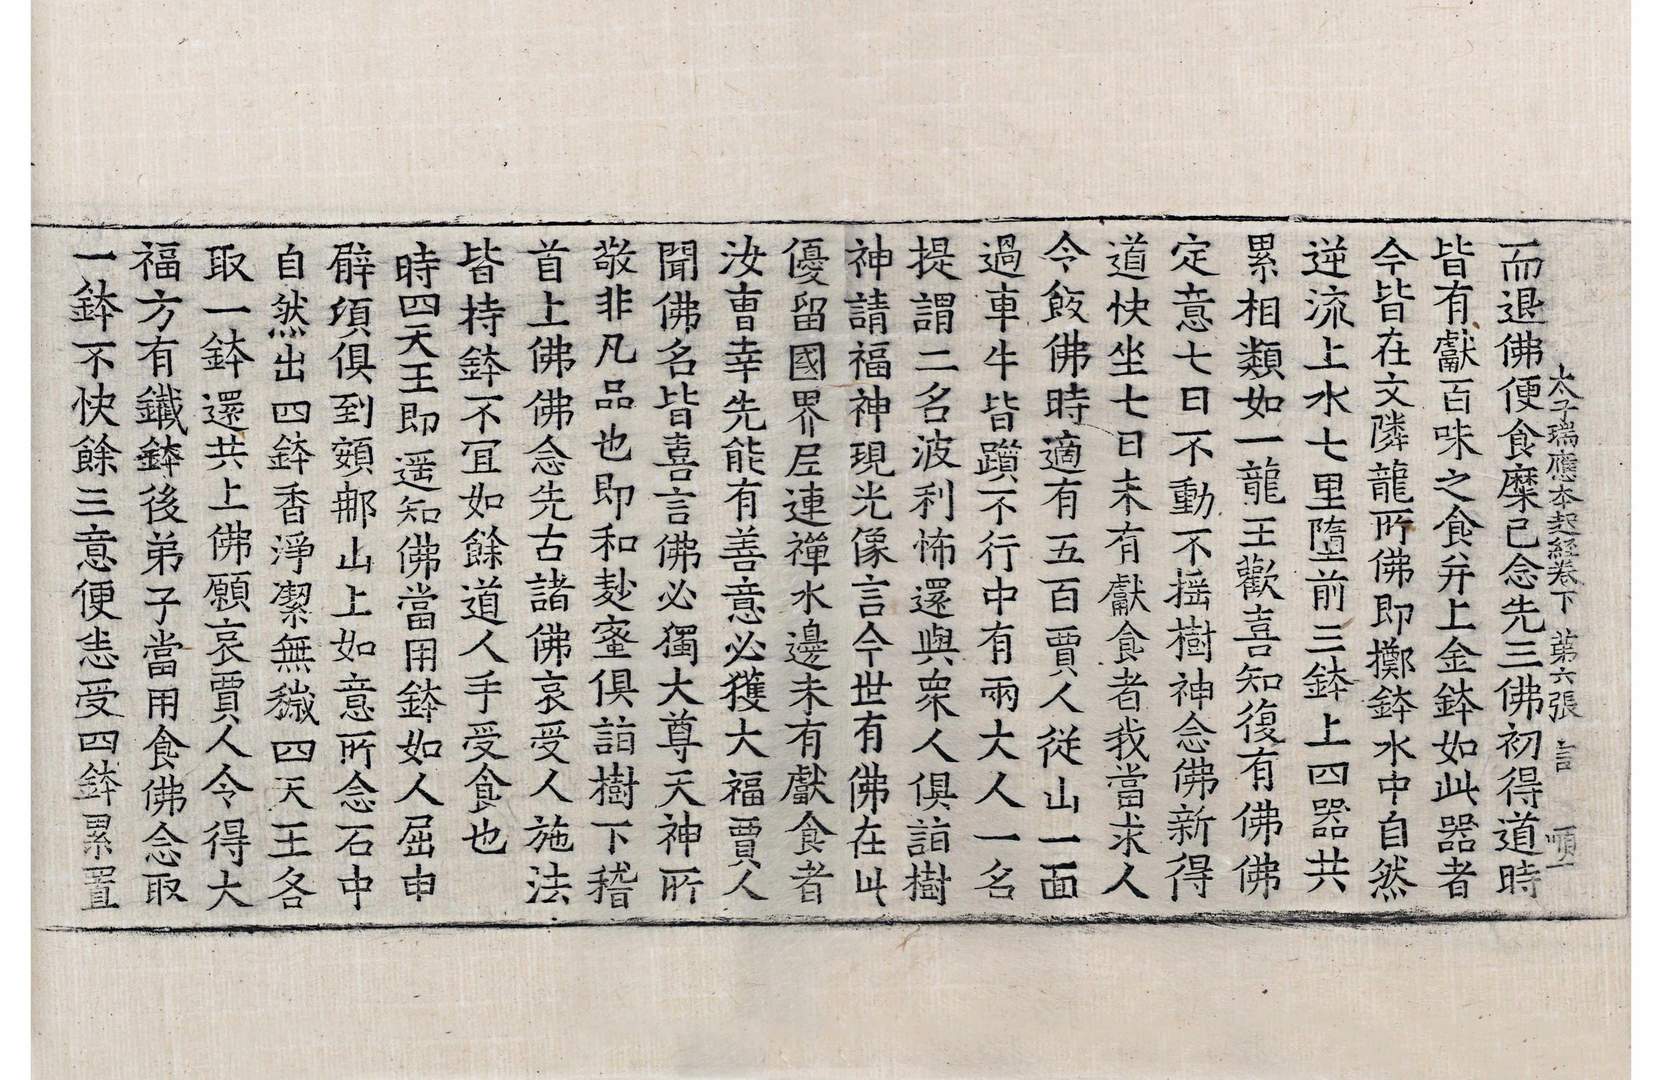 太子瑞應本起經卷下 第六張 言 順一
而退佛便食糜已念先三佛初得道時
皆有獻百味之食并上金鉢如此器者
今皆在文隣龍所佛即擲鉢水中自然
逆流上水七里墮前三鉢上四器共
累相類如一龍王歡喜知復有佛佛
定意七日不動不揺樹神念佛新得
道快坐七日未有獻食者我當求人
令飯佛時適有五百賈人從山一面
過車牛皆躓不行中有兩大人一名
提謂二名波利怖還與衆人俱詣樹
神請福神現光像言今世有佛在此
優留國界㞐連禪水邊未有獻食者
汝曹幸先能有善意必獲大福賈人
聞佛名皆喜言佛必獨大尊天神所
敬非凡品也即和麨蜜俱詣樹下稽
首上佛佛念先古諸佛哀受人施法
皆持鉢不宜如餘道人手受食也
時四天王即遥知佛當用鉢如人屈申
臂頃俱到頞𨚗山上如意所念石中
自然出四鉢香淨潔無穢四天王各
取一鉢還共上佛願哀賈人令得大
福方有鐵鉢後弟子當用食佛念取
一鉢不快餘三意便悉受四鉢累置